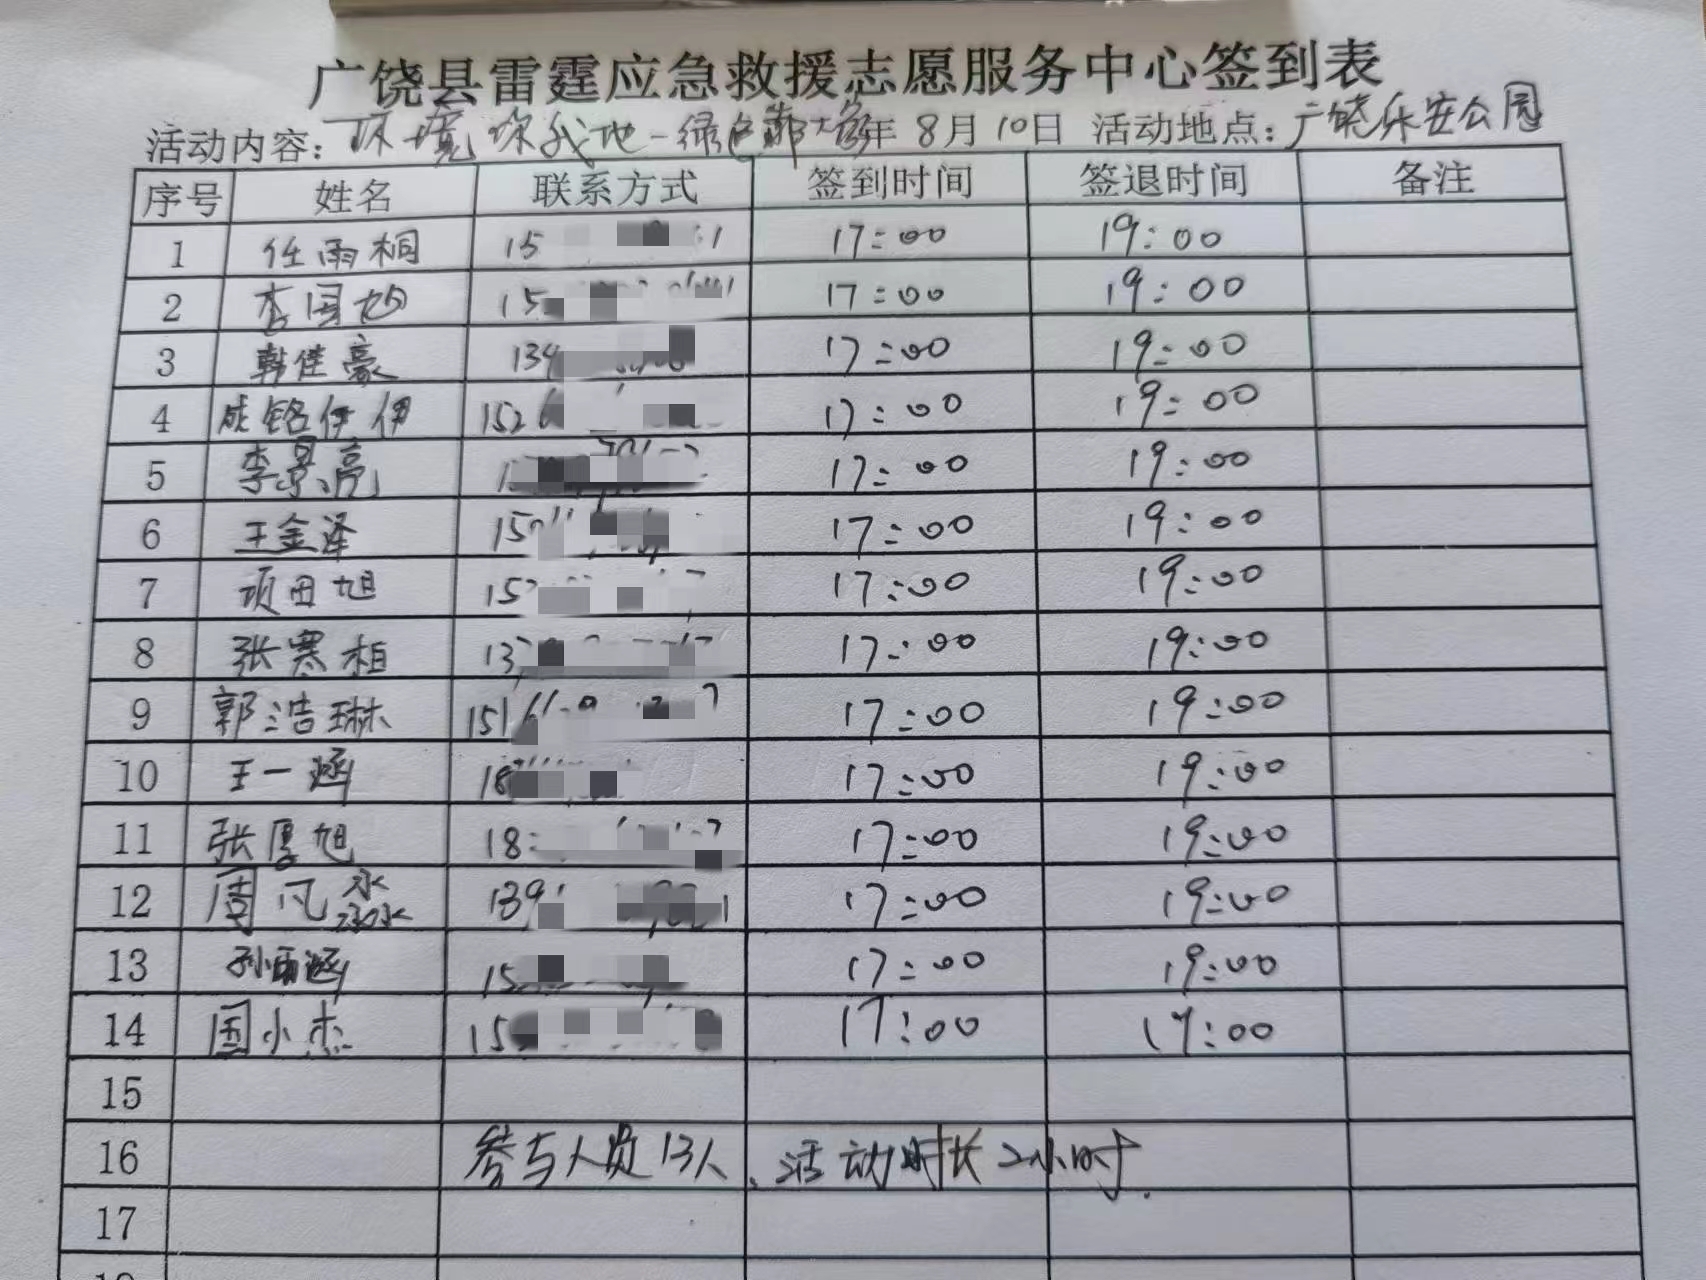 广饶县雷霆应急救援志愿服务中心签到表
活动内容: 环境 你我他一绿色 年 8月 10日 活动地点: 广饶乐安公园
序号 姓名 联系方式 签到时间 签退时间 备注
1 任雨桐 15 1 17:00 19:00
2 李国旭 15 17:00 19:00
3 韩佳豪 139 17:00 19:00
4 成铭伊伊 1526 17:00 19:00
5 李景亮 1 17:00 19:00
6 王金泽 15 17:00 19:00
7 项田旭 15 17:00 19:00
8 张寒柏 13 17:00 19:00
9 郭浩琳 151 7 17:00 19:00
10 王一涵 18 17:00 19:00
11 张厚旭 18 17:00 19:00
12 周凡淼 139 1 17:00 19:00
13 孙雨涵 15 17:00 19:00
14 国小杰 15 17:00 19:00
15
16 参与人员13人、活动时长2小时.
17